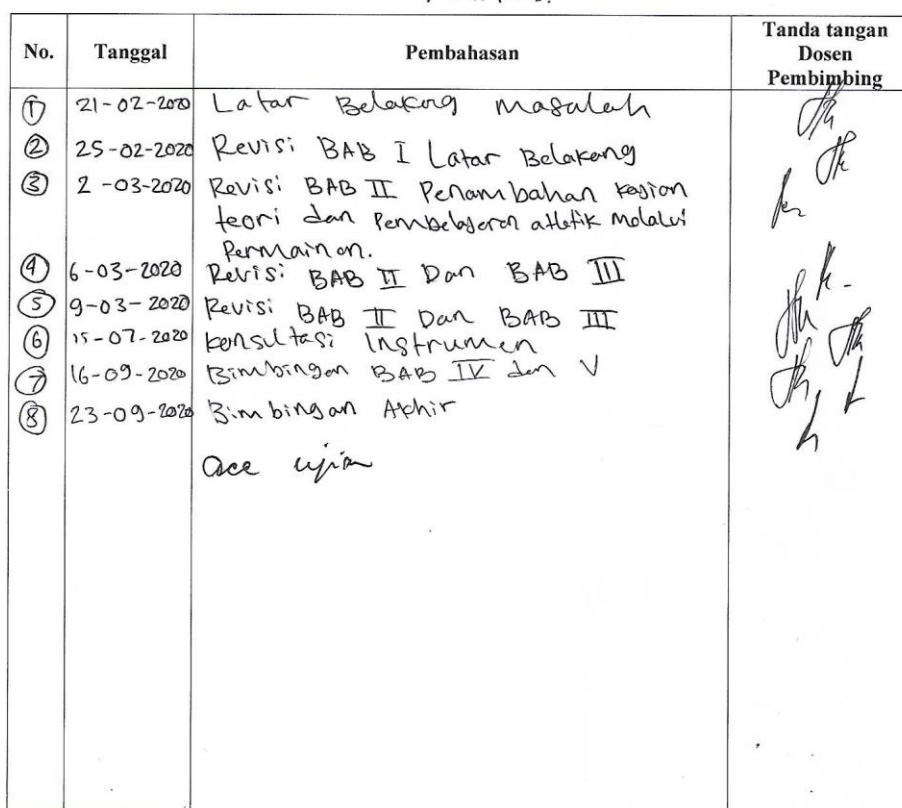 No. Tanggal Pembahasan Tanda tangan
Dosen
Pembimbing
1 21-02-2020 Latar Belakang masalah
2 25-02-2020 Revisi BAB I Latar Belakang
3 2-03-2020 Revisi BAB II Penambahan kajian
teori dan Pembelajaran atletik melalui
Permainan.
4 6-03-2020 Revisi BAB II Dan BAB III
5 9-03-2020 Revisi BAB II Dan BAB III
6 15-07-2020 konsultasi Instrumen
7 16-09-2020 Bimbingan BAB IV dan V
8 23-09-2020 Bimbingan Akhir
acc ujian